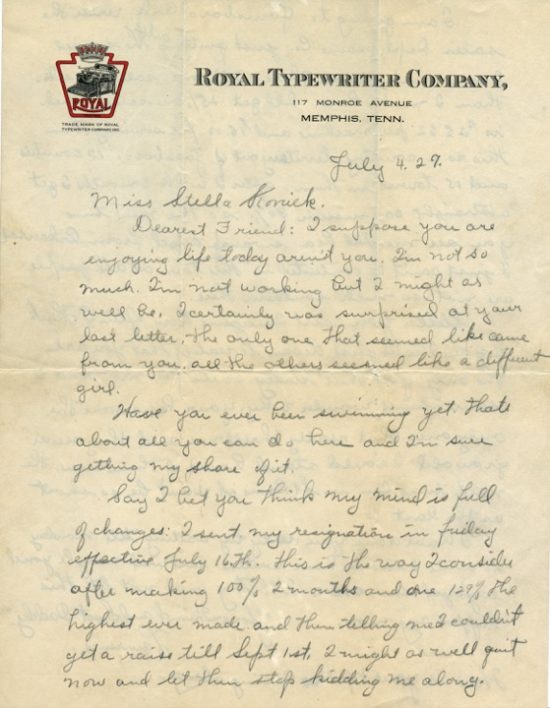 ROYAL
TRADE MARK OF ROYAL
TYPEWRITER COMPANY, INC.
ROYAL TYPEWRITER COMPANY,
117 MONROE AVENUE
MEMPHIS, TENN.
July 4. 29.
Miss Stella Konick.
Dearest Friend: I suppose you are
enjoying life today arent you. I'm not so
much. I'm not working but I might as
well be. I certainly was surprised at your
last letter, the only one that seemed like came
from you, all the others seemed like a different
girl.
Have you ever been swimming yet thats
about all you can do here and I'm sure
getting my share of it.
Say I bet you think my mind is full
of changes: I sent my resignation in friday
effective July 16th. This is the way I consider
after making 100% 2 months and one 129% the
highest ever made and then telling me I couldn't
get a raise till Sept 1st, I might as well quit
now and let them stop kidding me along.